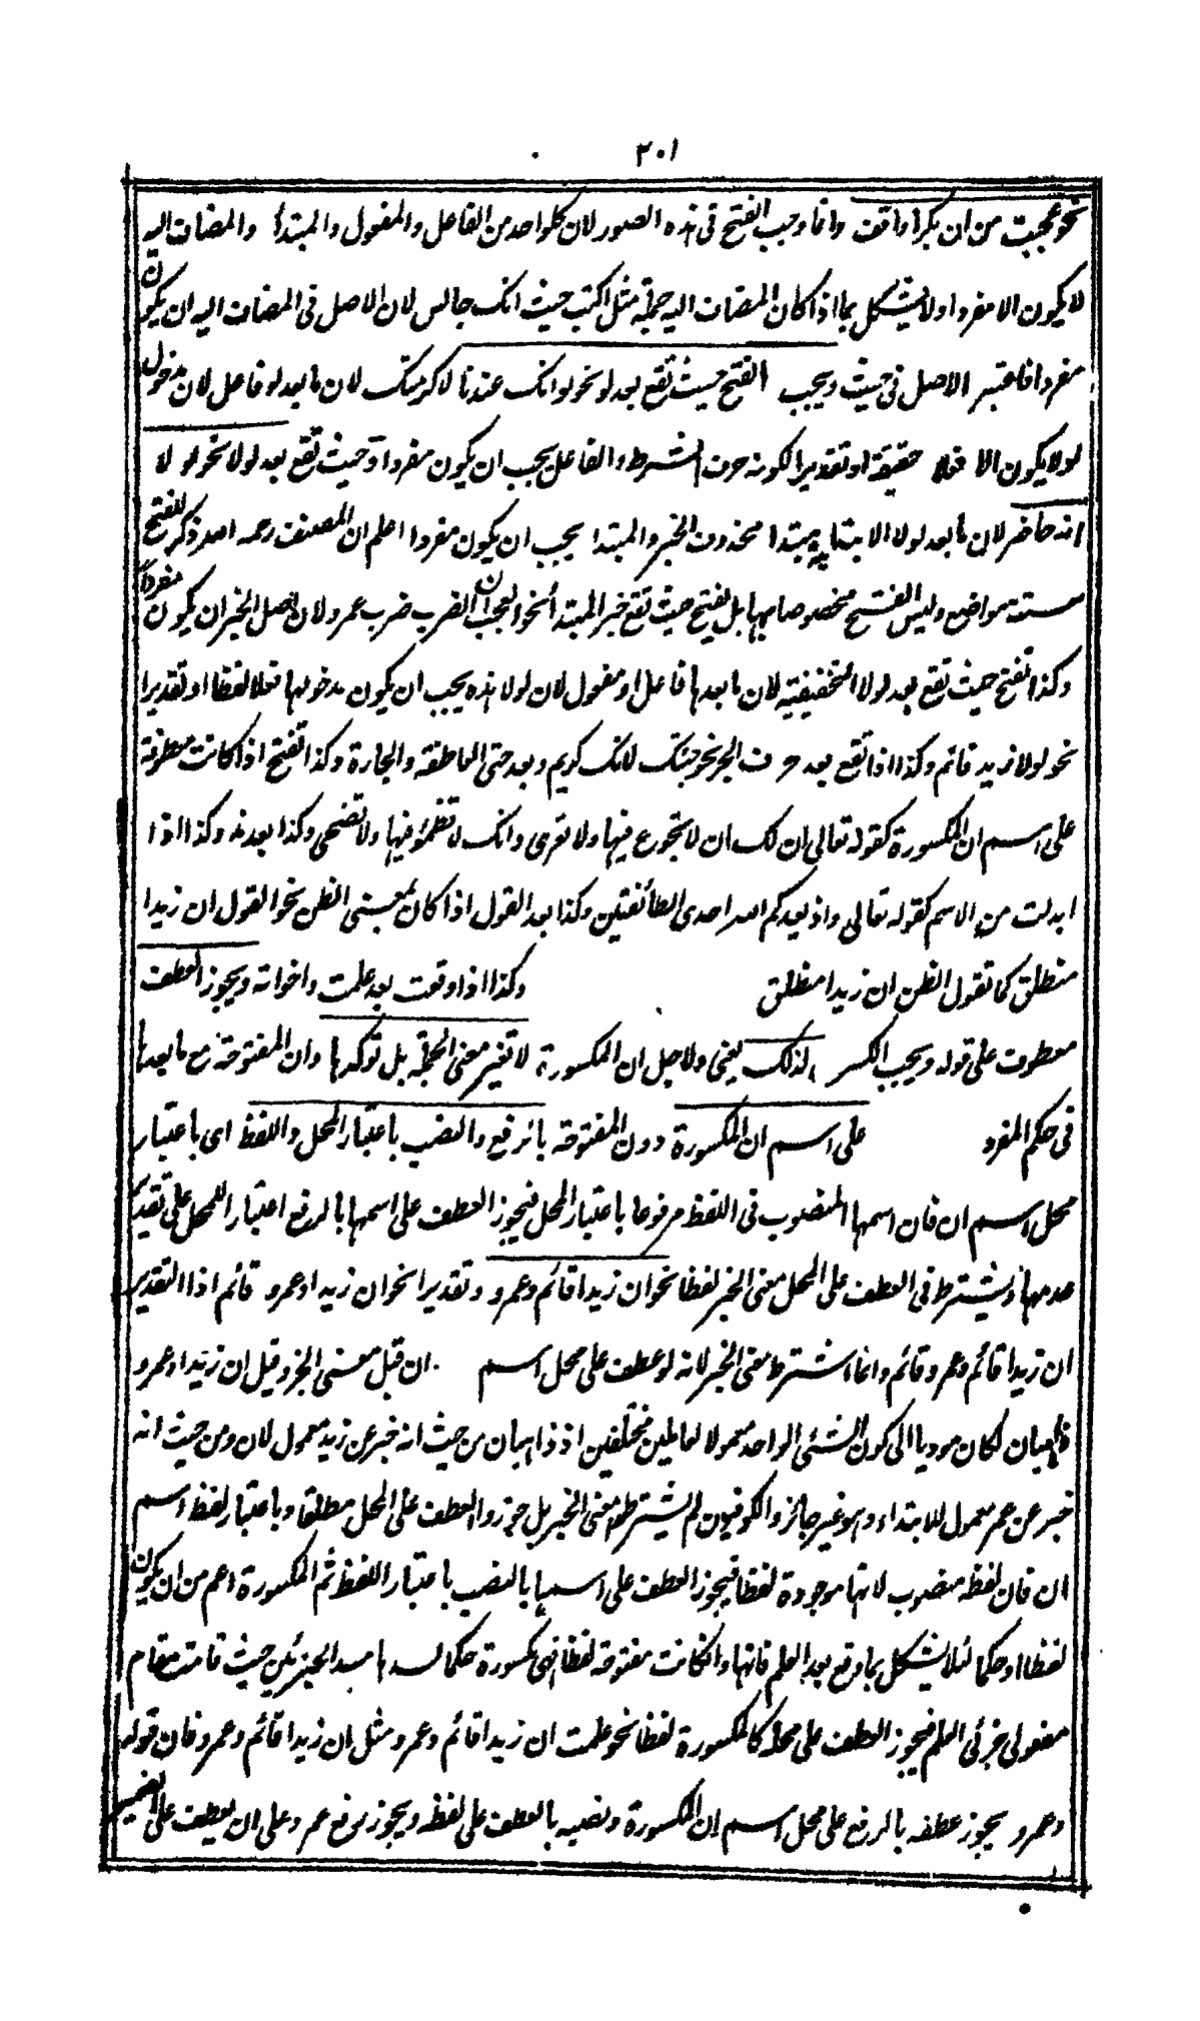 ٢٠١
نحو عجبت من ان بكرا واقف وانما وجب الفتح فى هذه الصور لان كلواحد من الفاعل والمفعول والمبتدأ والمضاف اليه
لا يكون الا مفردا ولا يشكل بما اذا كان المضاف اليه جملة مثل اكتب حيث انك جالس لان الاصل فى المضاف اليه ان يكون
مفردا فاعتبر الاصل فى حيث ويجب الفتح حيث تقع بعد لو نحو لو انك عندنا لاكرمتك لان ما بعد لو فاعل لان مدخول
لو لا يكون الا فعلا حقيقة او تقديرا لكونه حرف الشرط والفاعل يجب ان يكون مفردا وحيث تقع بعد لولا نحو لو لا
انه حاضر لان ما بعد لولا الابتدائية مبتدا محذوف الخبر والمبتدا يجب ان يكون مفردا اعلم ان المصنف رحمه الله ذكر للفتح
ستة مواضع وليس الفتح مخصوصا بها بل يفتح حيث تقع خبر المبتدأ نحو العجب ان الضرب ضرب عمرو لان اصل الخبر ان يكون مفردا
وكذا تفتح حيث تقع بعد لولا التخفيفية لان ما بعدها فاعل او مفعول لان لولا هذه يجب ان يكون مدخولها فعلا لفظا او تقديرا
نحو لولا زيد قائم وكذا اذا تقع بعد حرف الجر نحو جئتك لانك كريم وبعد حتى العاطفة والجارة وكذا تفتح اذا كانت معطوفة
على اسم ان المكسورة كقوله تعالى ان لك ان لا تجوع فيها ولا تعرى وانك لا تظمؤ فيها ولا تضحى وكذا بعد مذ وكذا اذا
ابدلت من الاسم كقوله تعالى واذ يعدكم الله احدى الطائفتين وكذا بعد القول اذا كان بمعنى الظن نحو القول ان زيدا
منطلق كما تقول الظن ان زيدا منطلق وكذا اذا وقعت بعد علمت واخواته ويجوز العطف
معطوف على قوله ويجب الكسر لذلك يعنى ولاجل ان المكسورة لا تغير معنى الجملة بل توكدها وان المفتوحة مع ما بعدها
فى حكم المفرد على اسم ان المكسورة دون المفتوحة بالرفع والنصب باعتبار المحل واللفظ اى باعتبار
محل اسم ان فان اسمها المنصوب فى اللفظ مرفوعا باعتبار المحل فيجوز العطف على اسمها بالرفع اعتبارا للمحل على تقدير
عدمها ويشترط فى العطف على المحل معنى الخبر لفظا نحو ان زيدا قائم وعمرو وتقديرا نحو ان زيدا وعمرو قائم اذا التقدير
ان زيدا قائم وعمرو قائم وانما اشترط معنى الخبر لانه لو عطف على محل اسم ان قبل معنى الجزو قيل ان زيدا وعمرو
ذاهبان لكان موديا الى كون الشئ الواحد معمولا لعاملين مختلفين اذ ذاهبان من حيث انه خبر عن زيد معمول لان ومن حيث انه
خبر عن عمرو معمول للابتداء وهو غير جائز والكوفيون لم يشترط معنى الخبر بل جوزوا العطف على المحل مطلقا وباعتبار لفظ اسم
ان فان لفظه منصوب لانها موجودة لفظا فيجوز العطف على اسمها بالنصب باعتبار اللفظ ثم المكسورة اعم من ان يكون
لفظا او حكما لئلا يشكل بما وقع بعد العلم فانها وان كانت مفتوحة لفظا فهى مكسورة حكما لسدها مسد الجزئين حيث قامت مقام
مفعولى جزئى العلم فيجوز العطف على محله كالمكسورة لفظا نحو علمت ان زيدا قائم وعمرو مثل ان زيدا قائم وعمرو فان قوله
وعمرو يجوز عطفه بالرفع على محل اسم ان المكسورة ونصبه بالعطف على لفظه ويجوز رفع عمرو على ان يعطف على الضمير